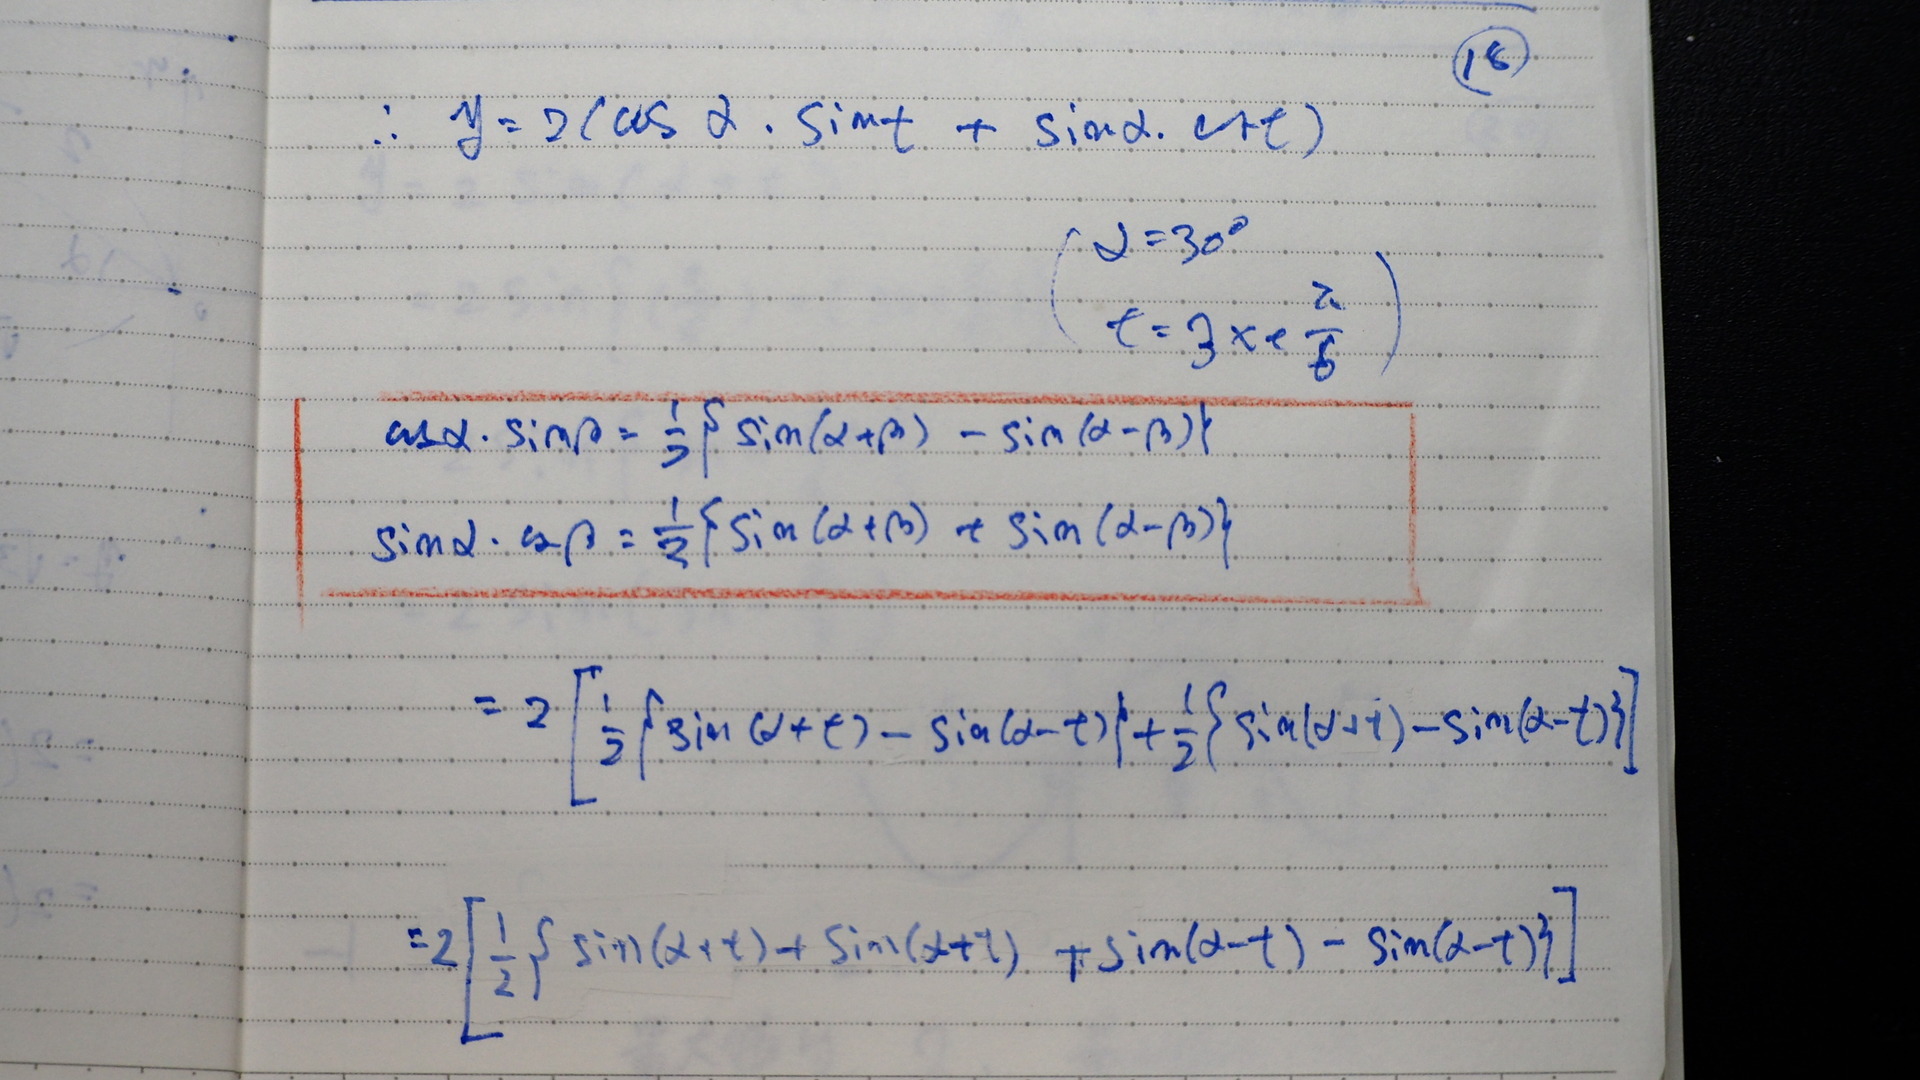 ⑱
∴ y = 2(cos α · sin t + sin α · cos t)
(α = 30°
t = 3x + π/6)
cos α · sin β = 1/2{sin(α+β) - sin(α-β)}
sin α · cos β = 1/2{sin(α+β) + sin(α-β)}
= 2[1/2{sin(α+t) - sin(α-t)} + 1/2{sin(α+t) - sin(α-t)}]
= 2[1/2{sin(α+t) + sin(α+t) + sin(α-t) - sin(α-t)}]